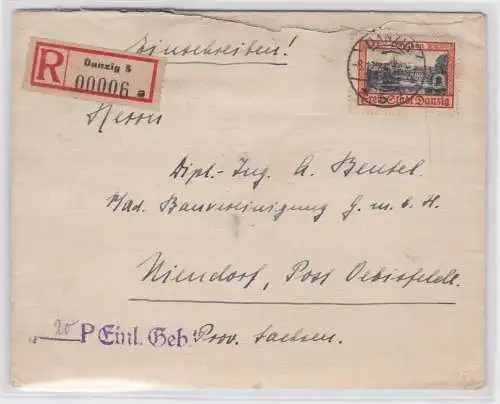 Einschreiben!
R Danzig 5
00006 a
DANZIG
5
Freie Stadt Danzig
Herrn
Dipl.-Ing. A. Beutel.
Bauvereinigung G. m. b. H.
Niendorf, Post Oebisfelde.
20 P Einl. Geb. Prov. Sachsen.